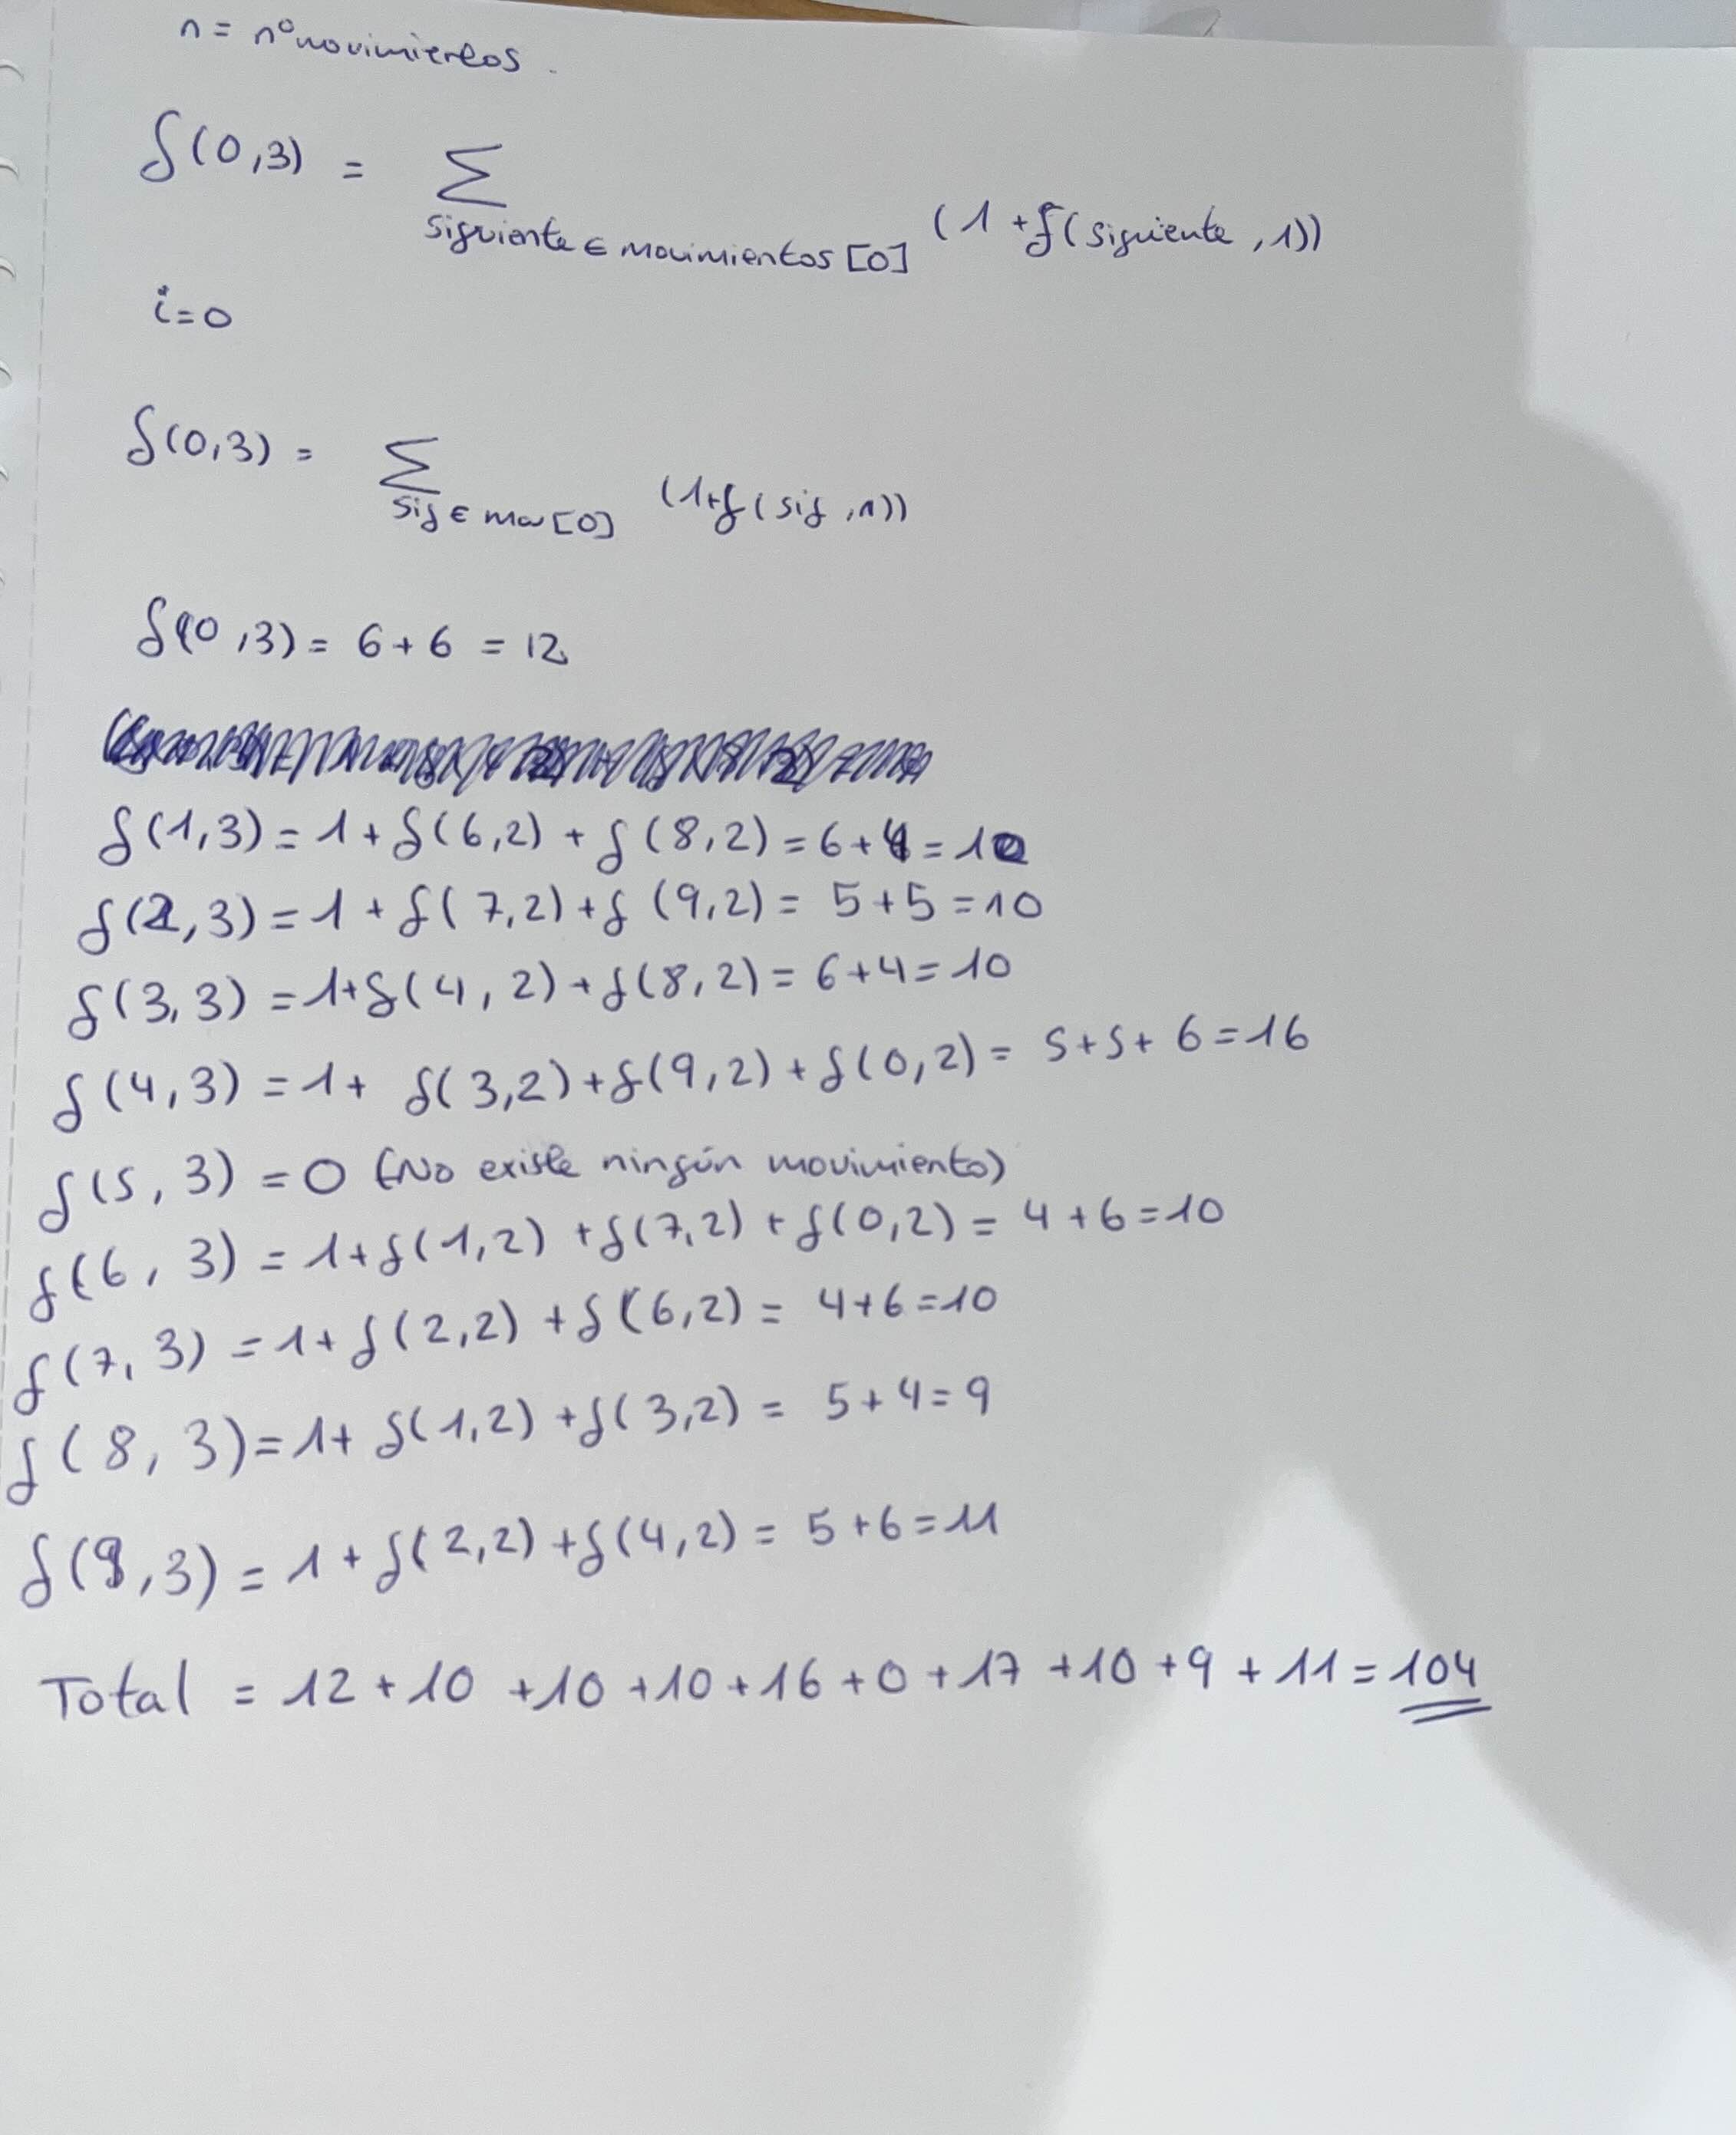 n = nº movimientos.
f(0,3) = Σ siguiente ∈ movimientos [0] (1 + f(siguiente, 1))
i=0
f(0,3) = Σ sig ∈ mov [0] (1+f(sig, n))
f(0,3) = 6+6 = 12
f(1,3) = 1+f(6,2) + f(8,2) = 6+4 = 10
f(2,3) = 1+f(7,2)+f(9,2) = 5+5 = 10
f(3,3) = 1+f(4,2)+f(8,2) = 6+4 = 10
f(4,3) = 1+ f(3,2)+f(9,2)+f(0,2) = 5+5+6 = 16
f(5,3) = 0 (No existe ningún movimiento)
f(6,3) = 1+f(1,2) +f(7,2) + f(0,2) = 4+6=10
f(7,3) = 1+f(2,2) +f(6,2) = 4+6=10
f(8,3) = 1+ f(1,2) +f(3,2) = 5+4=9
f(9,3) = 1+f(2,2) +f(4,2) = 5+6=11
Total = 12+10 +10 +10+16+0+17 +10+9 + 11 = 104